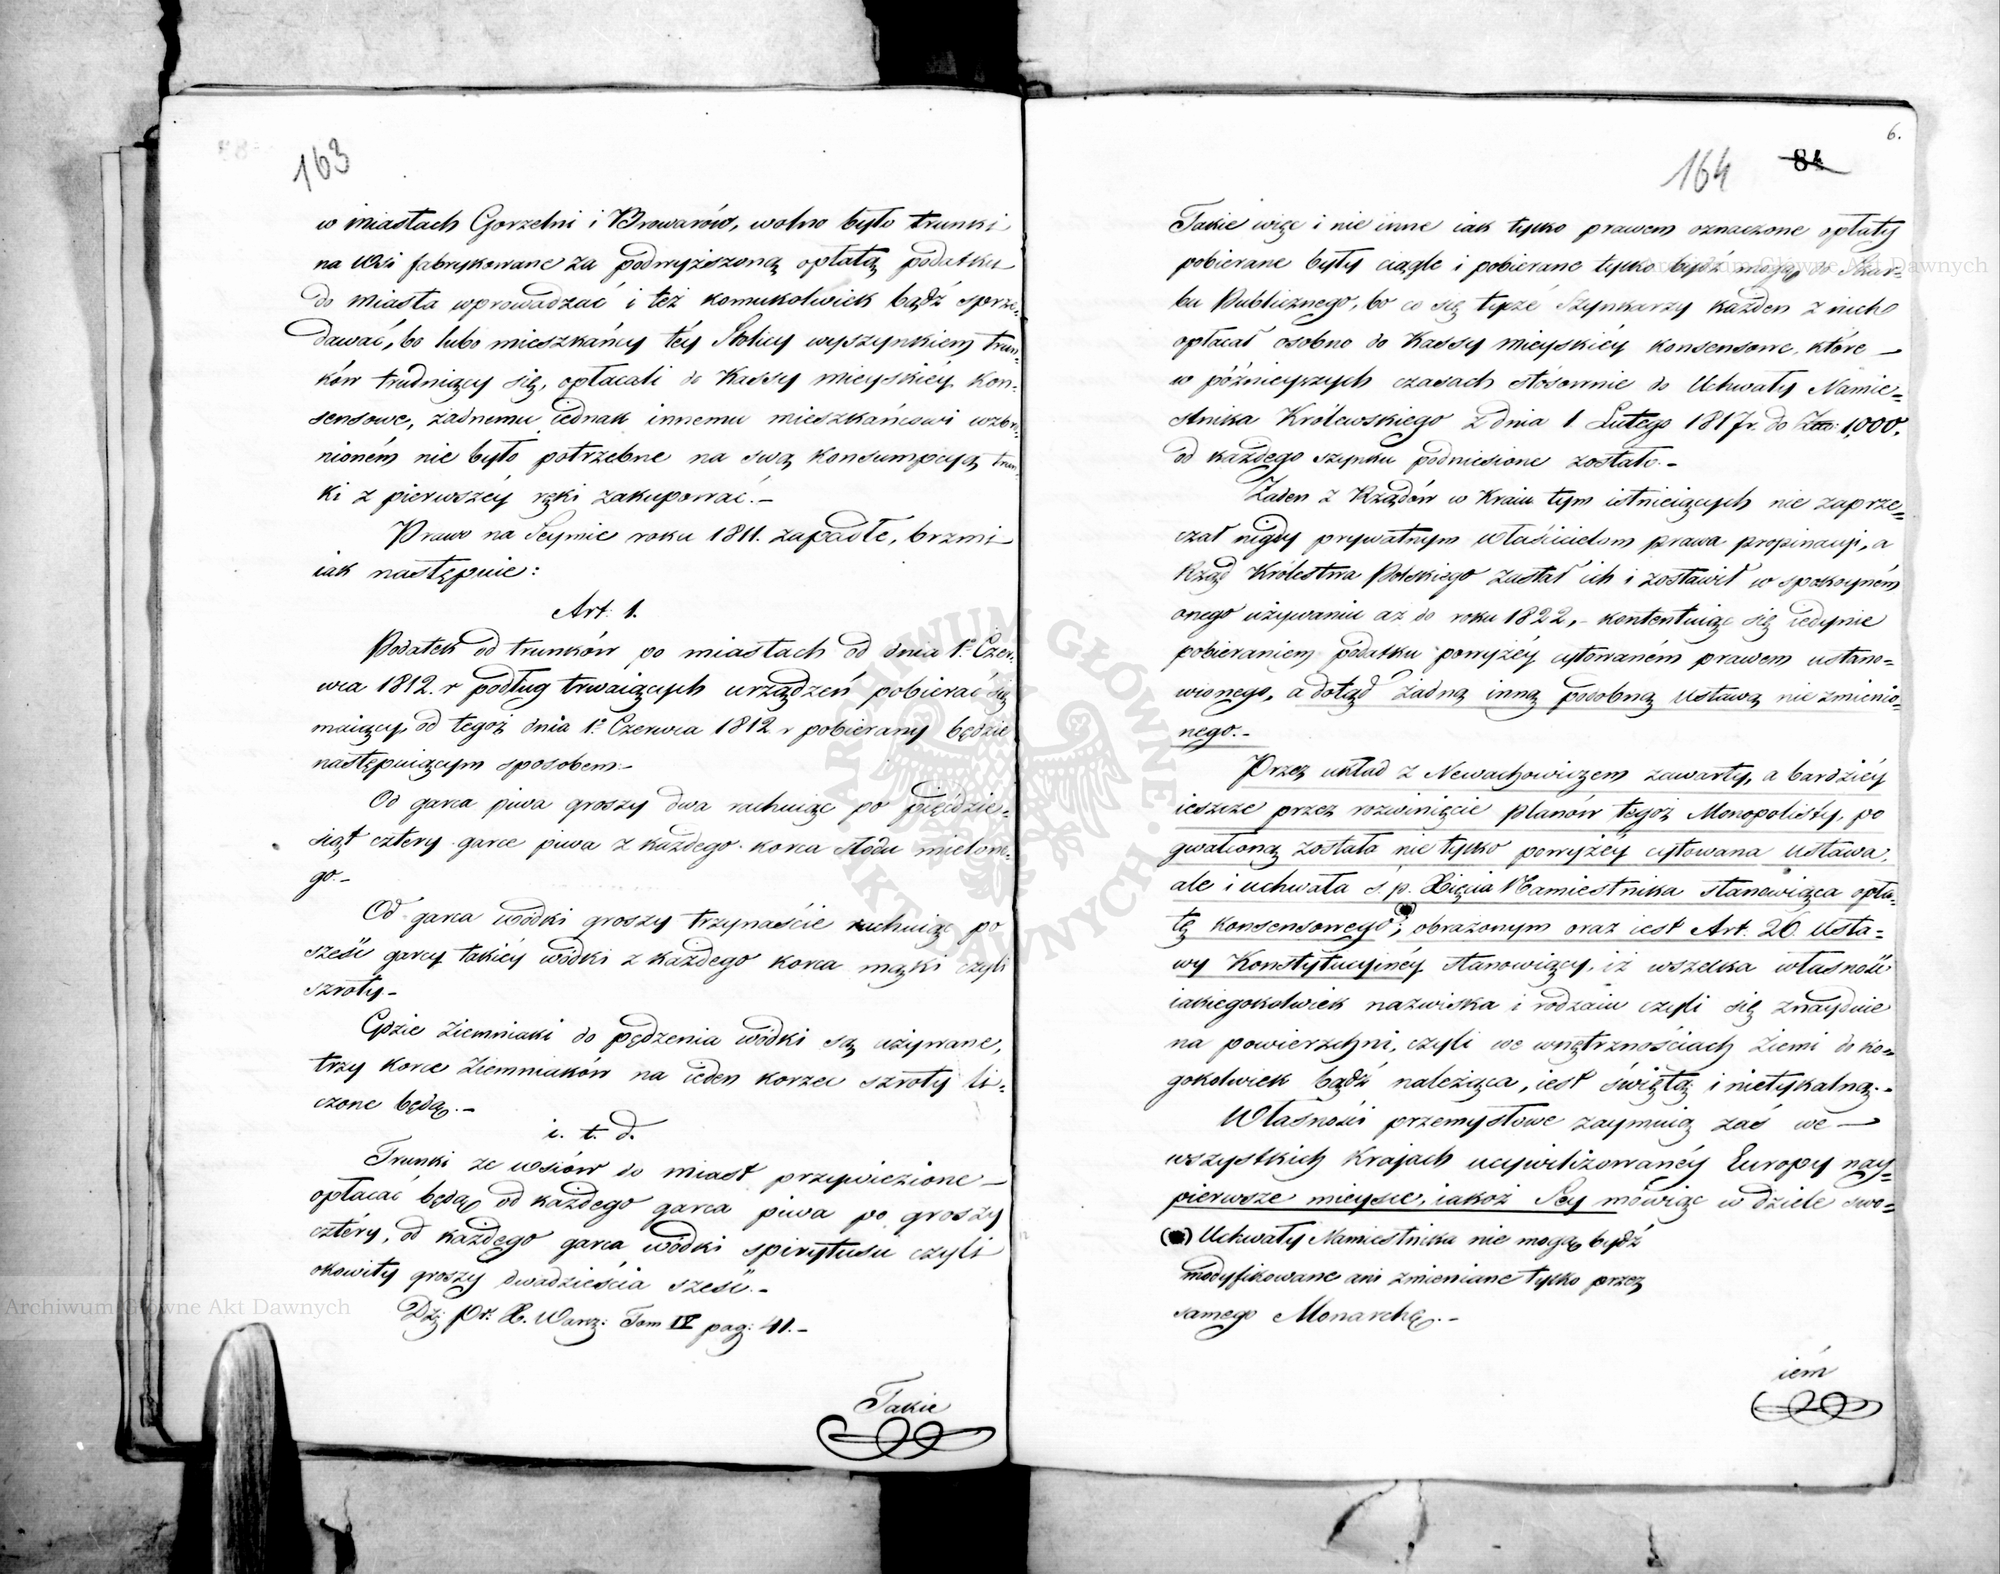 163
w miastach Gorzelni i Browarów, wolno było trunki
na Wsi fabrykowane za podwyższoną opłatą podatku
do miasta wprowadzać i też komukolwiek bądź sprze-
dawać, bo lubo mieszkańcy téy Stolicy wyszynkiem trun-
ków trudniący się, opłacali do Kassy mieyskiéy kon-
sensowe, żadnemu iednak innemu mieszkańcowi wzbro-
nioném nie było potrzebne na swą konsumpcyą trun-
ki z pierwszéy ręki zakupować.-
Prawo na Seymie roku 1811. zapadłe, brzmi
iak następuie:
Art. 1.
Podatek od trunków po miastach od dnia 1º Czer-
wca 1812. r podług trwaiących urządzeń pobierać się
maiący, od tegoż dnia 1º Czerwca 1812 r pobierany będzie
następuiącym sposobem.-
Od garca piwa groszy dwa rachuiąc po pięćdzie-
siąt cztery garce piwa z każdego korca słodu mielone-
go.-
Od garca wódki groszy trzynaście rachuiąc po
sześć garcy takiéy wódki z każdego korca mąki czyli
szroty.-
Gdzie Ziemniaki do pędzenia wódki są używane,
trzy korce Ziemniaków na ieden korzec szroty li-
czone będą.-
i. t. d.
Trunki ze wsiów do miast przywiezione -
opłacać będą od każdego garca piwa po groszy
cztéry, od każdego garca wódki spirytusu czyli
okowity groszy dwadzieścia sześć.-
Dz: Pr. X. Warsz: Tom IV pag: 41.-
Takie
6.
164 84
Takie więc i nie inne iak tylko prawem oznaczone opłaty
pobierane były ciągle i pobierane tylko bydź mogą do Skar-
bu Publicznego, bo co się tycze Szynkarzy każden z nich
opłacał osobno do Kassy mieyskiéy konsensowe, które -
w poźnieyszych czasach stósownie do Uchwały Namie-
stnika Królewskiego z dnia 1. Lutego 1817 r. do 1,000.
od każdego szynku podniesione zostało.-
Żaden z Rządów w kraiu tym istnieiących nie zaprze-
czał nigdy prywatnym właścicielom prawa propinacyi, a
Rząd Królestwa Polskiego zastał ich i zostawił w spokoyném
onego używaniu aż do roku 1822, - kontentuiąc się iedynie
pobieraniem podatku powyżéy cytowaném prawem ustano-
wionego, a dotąd żadną inną podobną Ustawą nie zmienio-
nego.-
Przez układ z Newachowiczem zawarty, a bardziéy
ieszcze przez rozwinięcie planów tegoż Monopolisty, po
gwałconą została nie tylko powyżéy cytowana Ustawa,
ale i uchwała ś. p. Xięcia Namiestnika stanowiąca opła-
tę konsensowego; obrażonym oraz iest Art. 26. Usta-
wy Konstytucyinéy stanowiący, iż wszelka własność
iakiegokolwiek nazwiska i rodzaiu czyli się znayduie
na powierzchni, czyli we wnętrznościach ziemi do ko-
gokolwiek bądź należąca, iest świętą i nietykalną.-
Własności przemysłowe zaymuią zaś we -
wszystkich krajach ucywilizowanéy Europy nay-
pierwsze mieysce, iakoż Sey mówiąc w dziele swo-
(●) Uchwały Namiestnika nie mogą bydź
modyfikowane ani zmieniane tylko przez
samego Monarchę.-
iém
ARCHIWUM GŁÓWNE AKT DAWNYCH
Archiwum Główne Akt Dawnych
Archiwum Główne Akt Dawnych